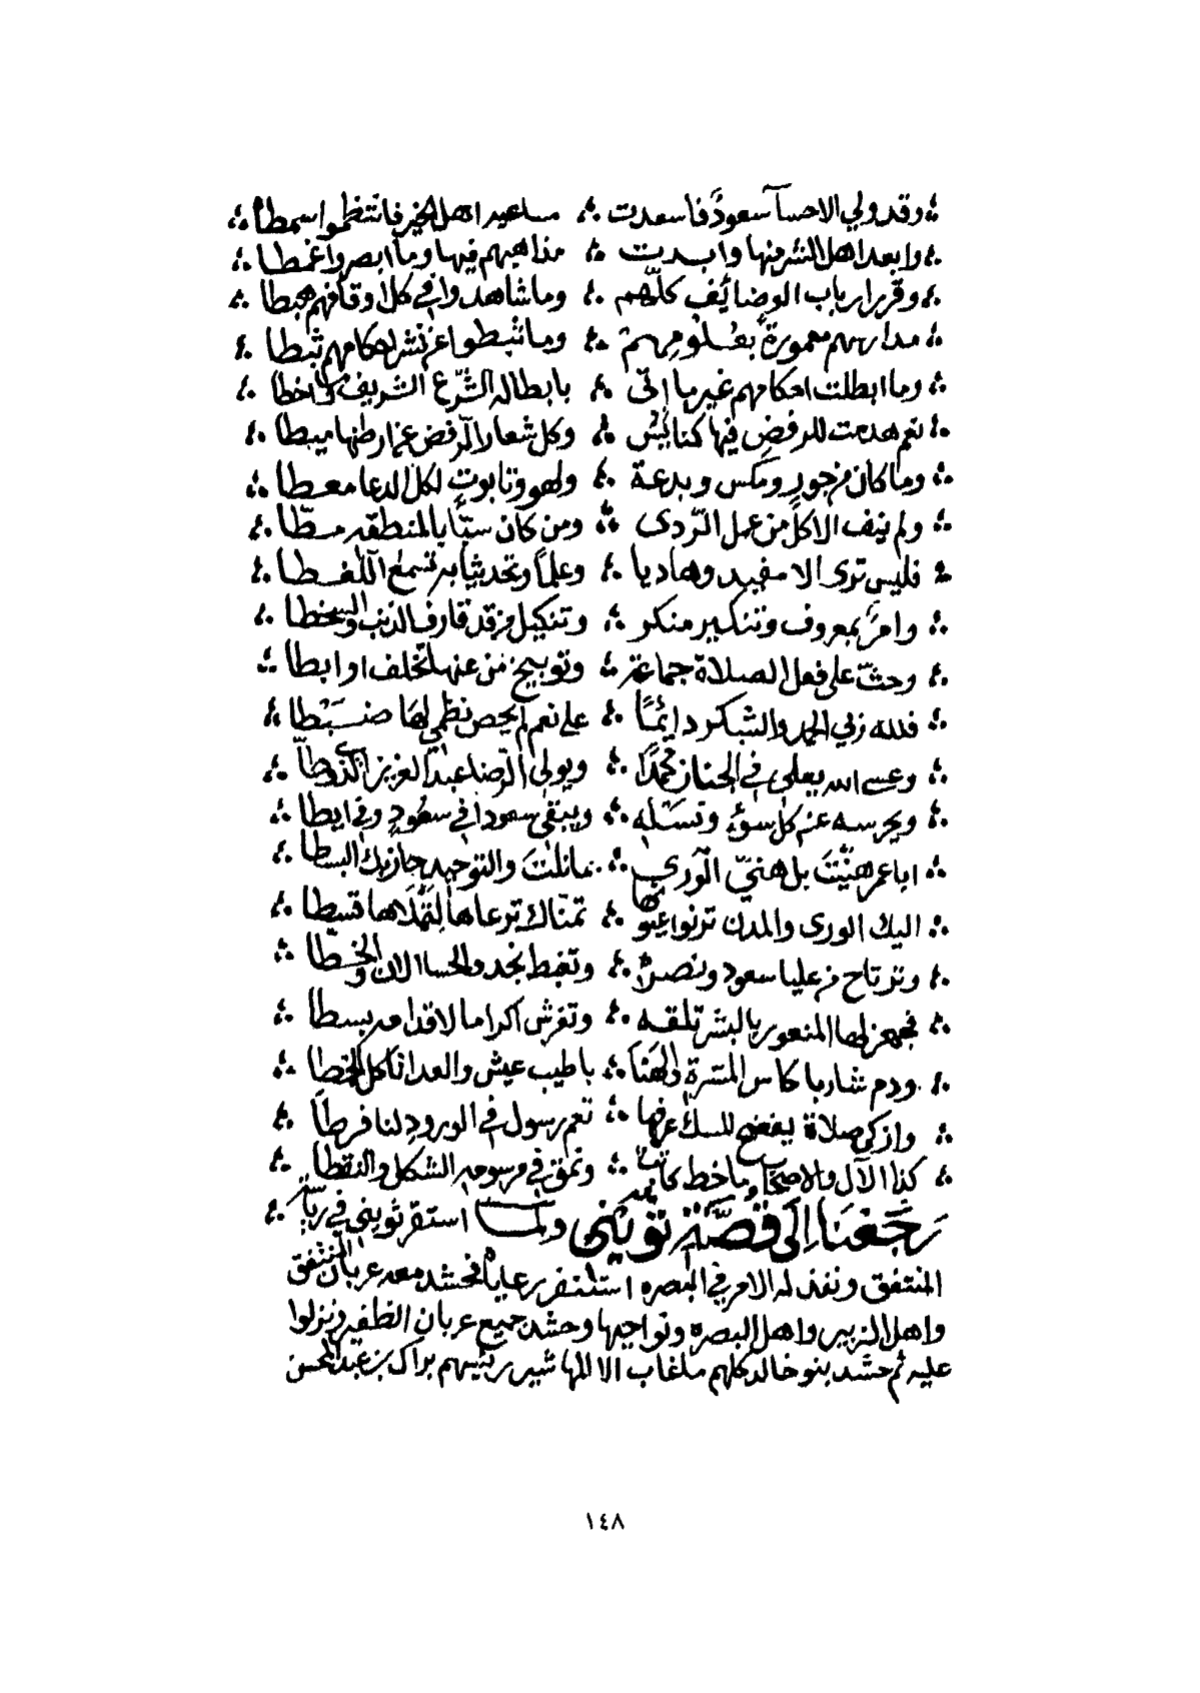 وقد ولي الاحسآ سعودٌ فاسعدت ∴ مساعيه اهل الخير فانتظموا سمطا
وابعد اهل الشر منها وابدت ∴ مذاهبهم فيها وما ابصروا غمطا
وقرر ارباب الوضائف كلّهم ∴ وما شاهدوا في كل اوقافهم هبطا
مدارسهم معمورةٌ بعلومهم ∴ وما ثبطوا عن نشر احكامهم ثبطا
وما ابطلت احكامهم غير ما اتى ∴ بابطاله الشّرع الشريف وما خطا
نعم هدمت للرفض فيها كنائس ∴ وكل شعار الرفض عن ارضها ميطا
وما كان من جورٍ ومكس وبدعة ∴ ولهو وتابوتٍ لكل الدعا معطا
ولم ينف الا كل من عمل الرّدى ∴ ومن كان سبّابا المنطقه سطّا
فليس ترى الا مفيد وهاديا ∴ وعلماً وتحديثا به تسمع اللغطا
وامرٌ بمعروف وتنكير منكر ∴ وتنكيل من قد قارف الذنب والسخطا
وحثّ على فعل الصلاة جماعة ∴ وتوبيخ من عنها تخلف او ابطا
فلله ربي الحمد والشكر دائمًا ∴ على نعم لم يحص نظمي لها ضبطا
وعسى الله يعلي في الجنان محمدًا ∴ ويولي الرضا عبد العزيز الذي وطّا
ويحرسه عن كل سوءٍ ونسله ∴ ويبقى سعودا في سعودٍ وفي ابطا
ابا عمر هنّيت بل هنيّ الورى ∴ بما نلت والتوحيد حاز بك البسطا
اليك الورى والمدن ترنوا عيونها ∴ تمناك ترعاها لتملاها قسطا
وترتاح من عليا سعود ونصره ∴ وتغبط نجد والحسا الان والخطّا
فجهز لها المنصور بالبشر تلقه ∴ وتفرش اكراما لاقدامه بسطا
ودم شاربا كاس المسّرة والهنا ∴ باطيب عيش والعدا تاكل الخمطا
وازكى صلاة يفضح المسك عرفها ∴ تعم رسول في الورود لنا فرطا
كذا الآل والاصحاب ما خط كاتب ∴ ونمق في مرسومه الشكل والنقطا
رَجَعْنَا اِلَى قصَّة ثويني ولما استقر ثويني في
المنتفق ونفذ له الامر في البصره استنفر رعاياه فحشد معه عربان المنتفق
واهل الزبير واهل البصره ونواحيها وحشد جميع عربان الظفير ونزلوا
عليه ثم حشد بنو خالد كلهم ما غاب الا المهاشير رئيسهم براك بن عبد المحسن
١٤٨